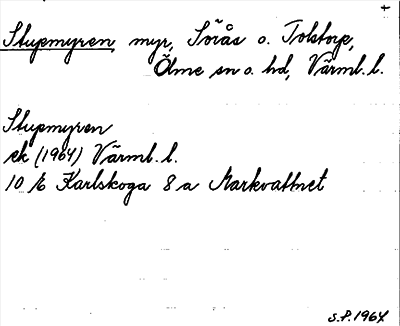 +
Stupmyren, myr, Sörås o. Tolstorp,
Ölme sn o. hd, Värml. l.
Stupmyren
ek (1964) Värml. l.
10 E Karlskoga 8 a Markvattnet
S.P. 1964